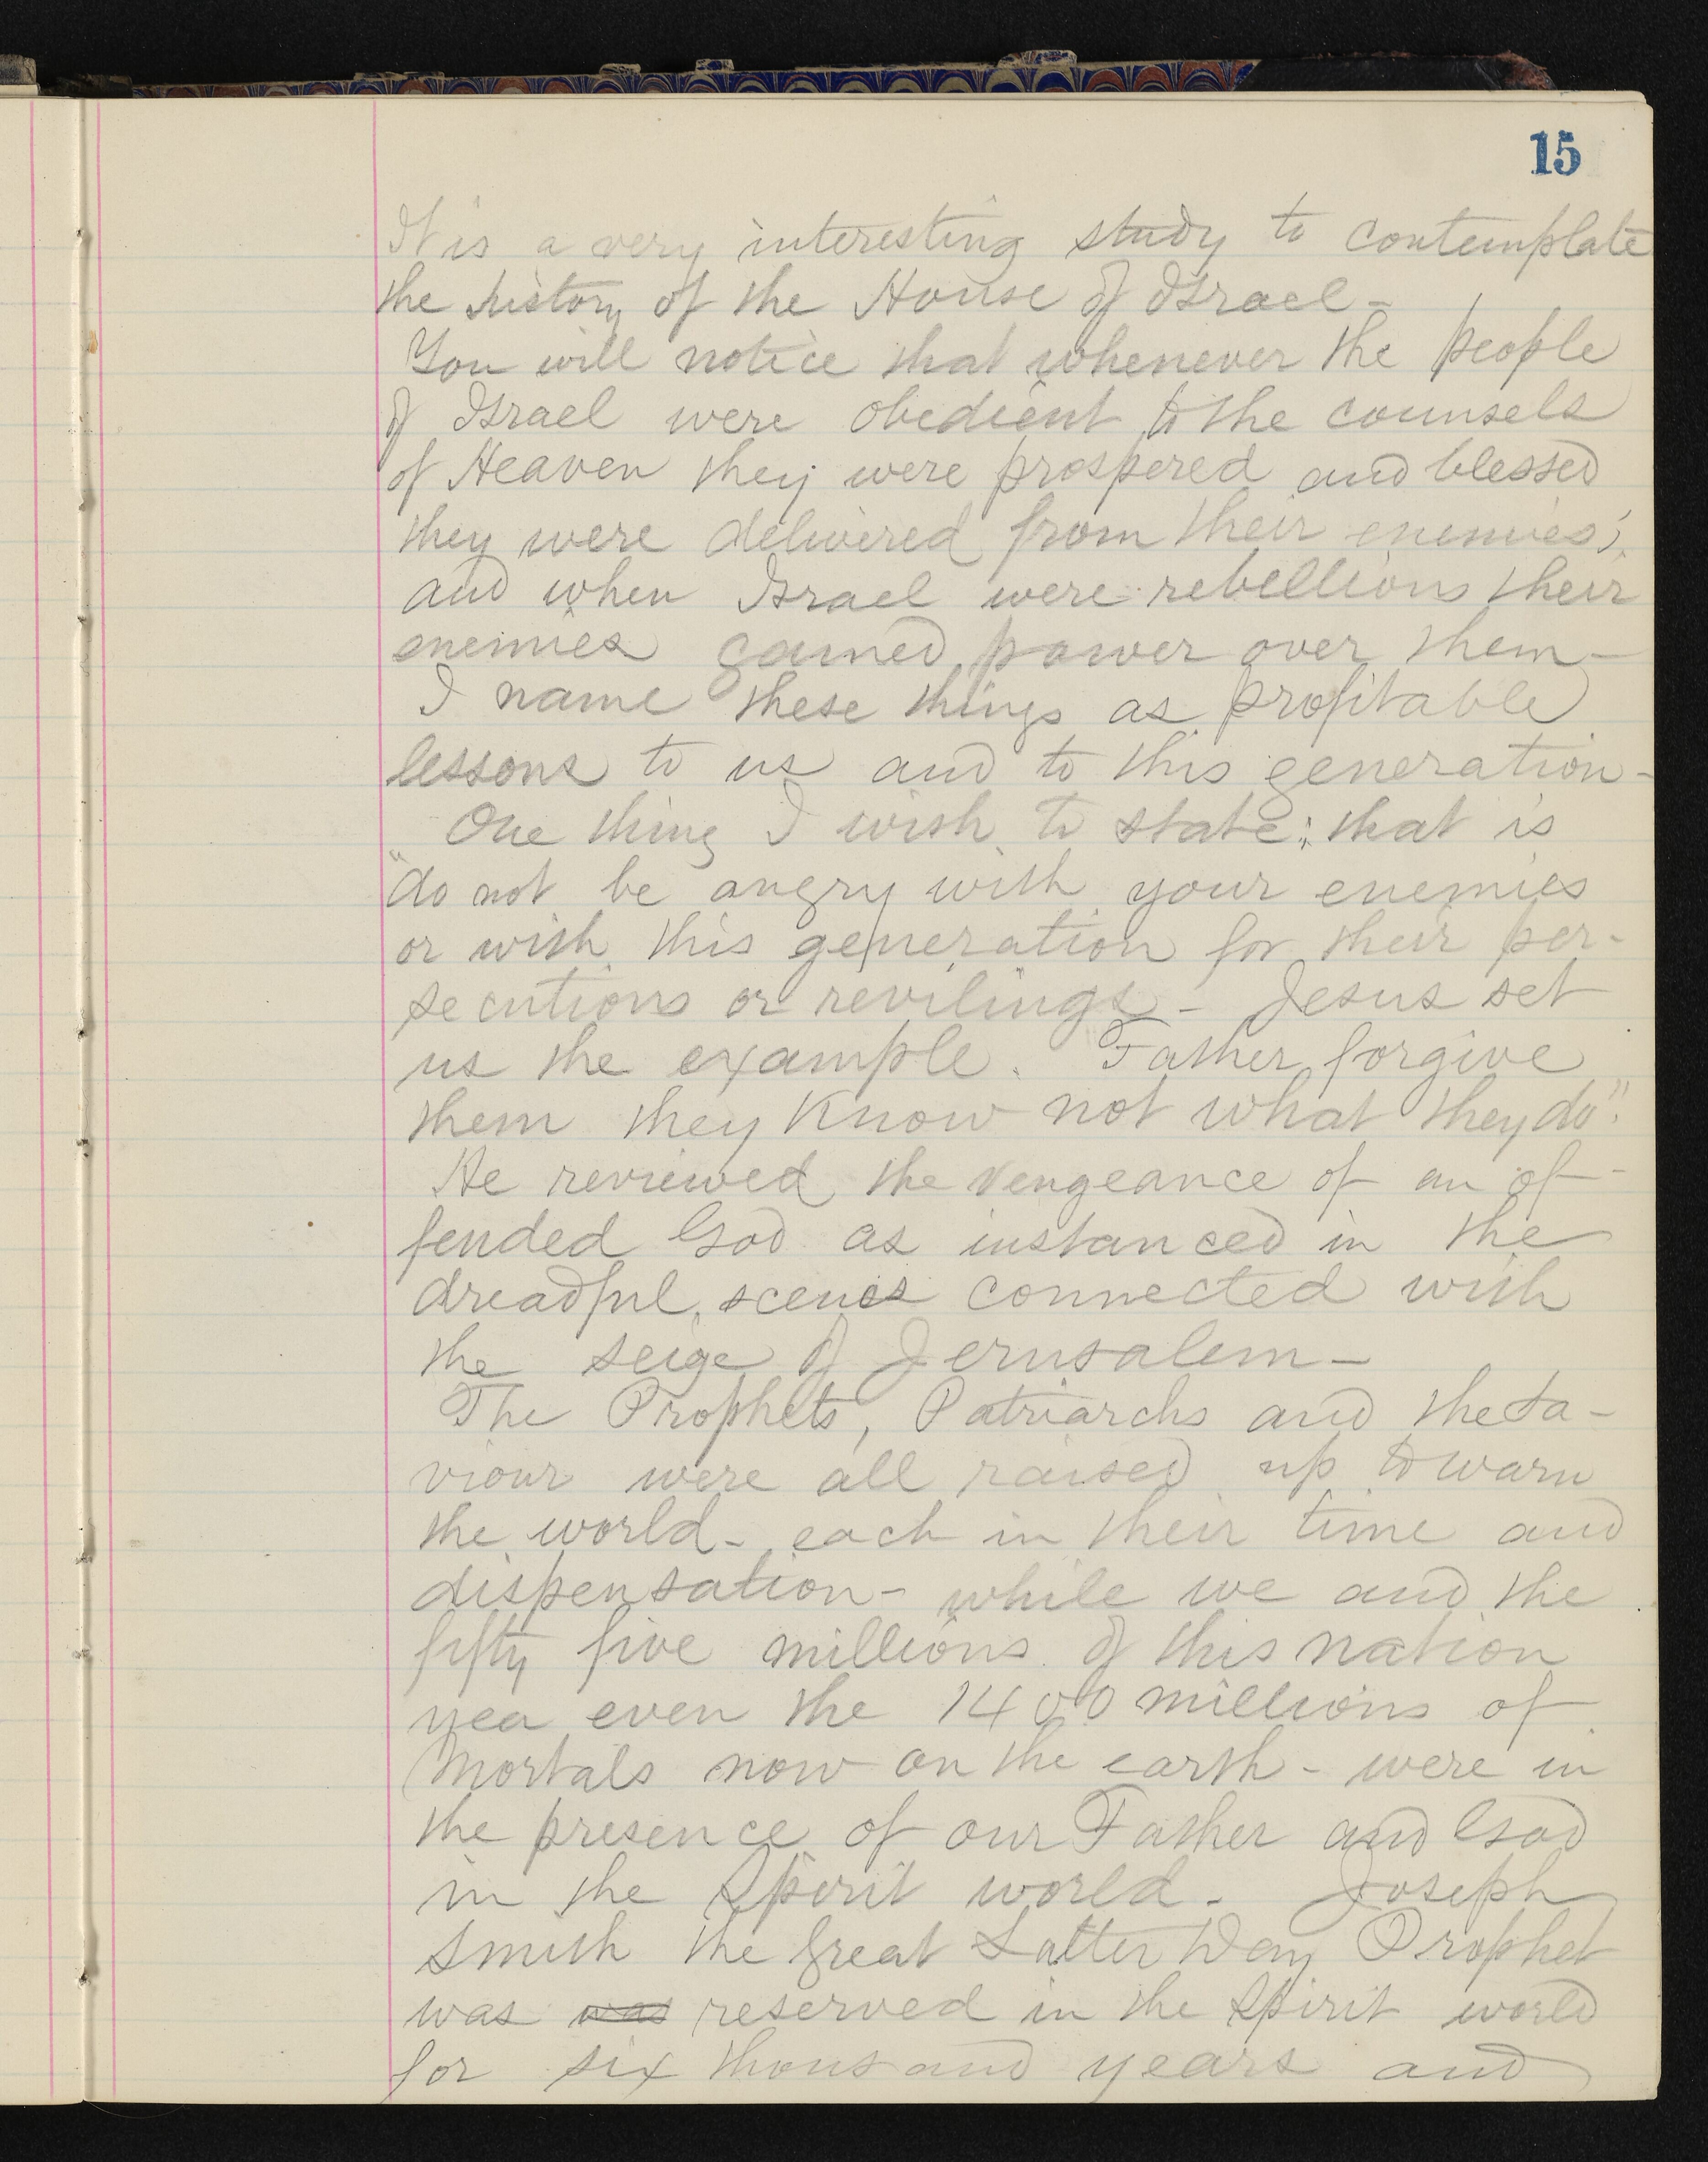 15
It is a very interesting study to contemplate
the history of the House of Israel -
You will notice that whenever the people
of Israel were obedient to the counsels
of Heaven they were prospered and blessed
they were delivered from their enemies;
and when Israel were rebellious their
enemies gained power over them -
I name these things as profitable
lessons to us and to this generation -
One thing I wish to state; that is
"do not be angry with your enemies
or with this generation for their per-
secutions or revilings - Jesus set
us the example. Father forgive
them they know not what they do".
He reviewed the vengeance of an of-
fended God as instanced in the
dreadful scenes connected with
the seige of Jerusalem -
The Prophets, Patriarchs and the Sa-
viour were all raised up to warn
the world - each in their time and
dispensation - while we and the
fifty five millions of this nation
yea even the 1400 millions of
Mortals now on the earth - were in
the presence of our Father and God
in the Spirit world - Joseph
Smith the great Latter Day Prophet
was was reserved in the Spirit world
for six thousand years and